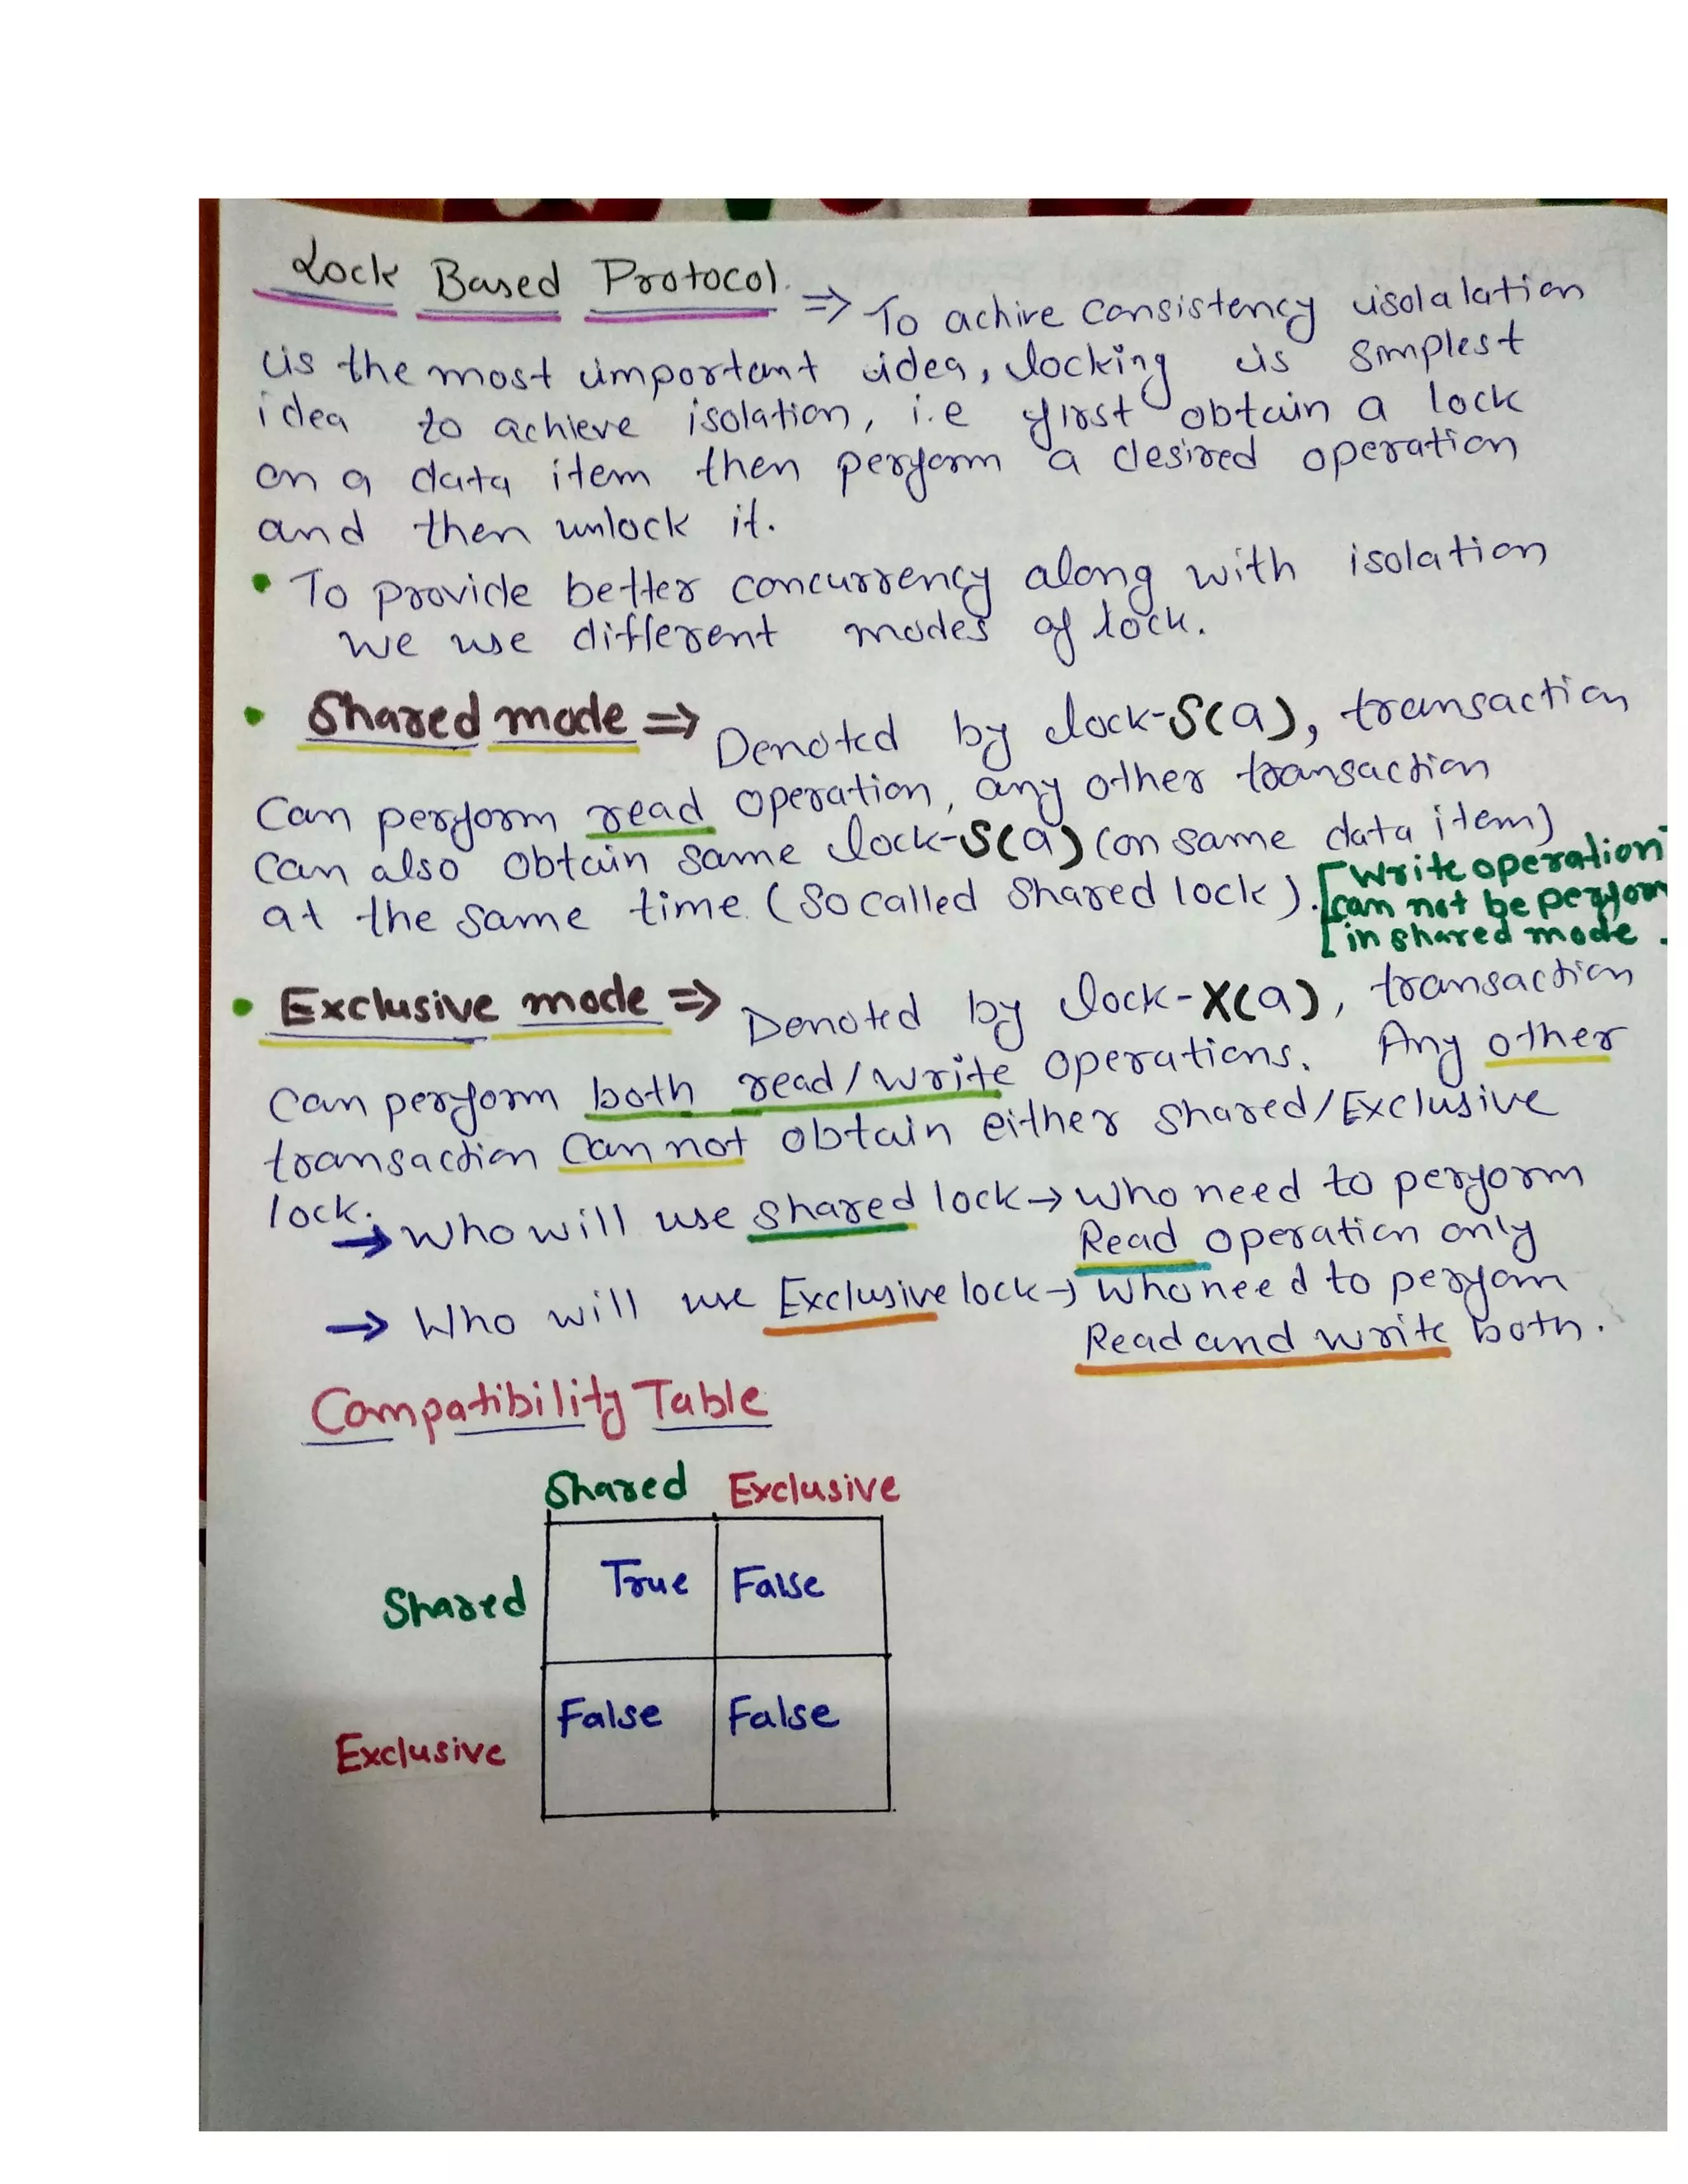 Lock Based Protocol. ⇒ To achire consistency isolalation
is the most important idea, locking is simplest
idea to achieve isolation, i.e first obtain a lock
on a data item then perform a desired operation
and then unlock it.
• To provide better concurrency along with isolation
we use different modes of lock.
• Shared mode ⇒ Denoted by lock-S(a), transaction
can perform read operation, any other transaction
can also obtain same lock-S(a) (on same data item)
at the same time (So called Shared lock).
[Write operation
can not be perform
in shared mode.
• Exclusive mode ⇒ Denoted by lock-X(a), transaction
can perform both read/write operations. Any other
transaction can not obtain either shared/Exclusive
lock.
→ Who will use shared lock → who need to perform
Read operation only
→ Who will use Exclusive lock → who need to perform
Read and write both.
Compatibility Table
Shared Exclusive
Shared True False
Exclusive False False